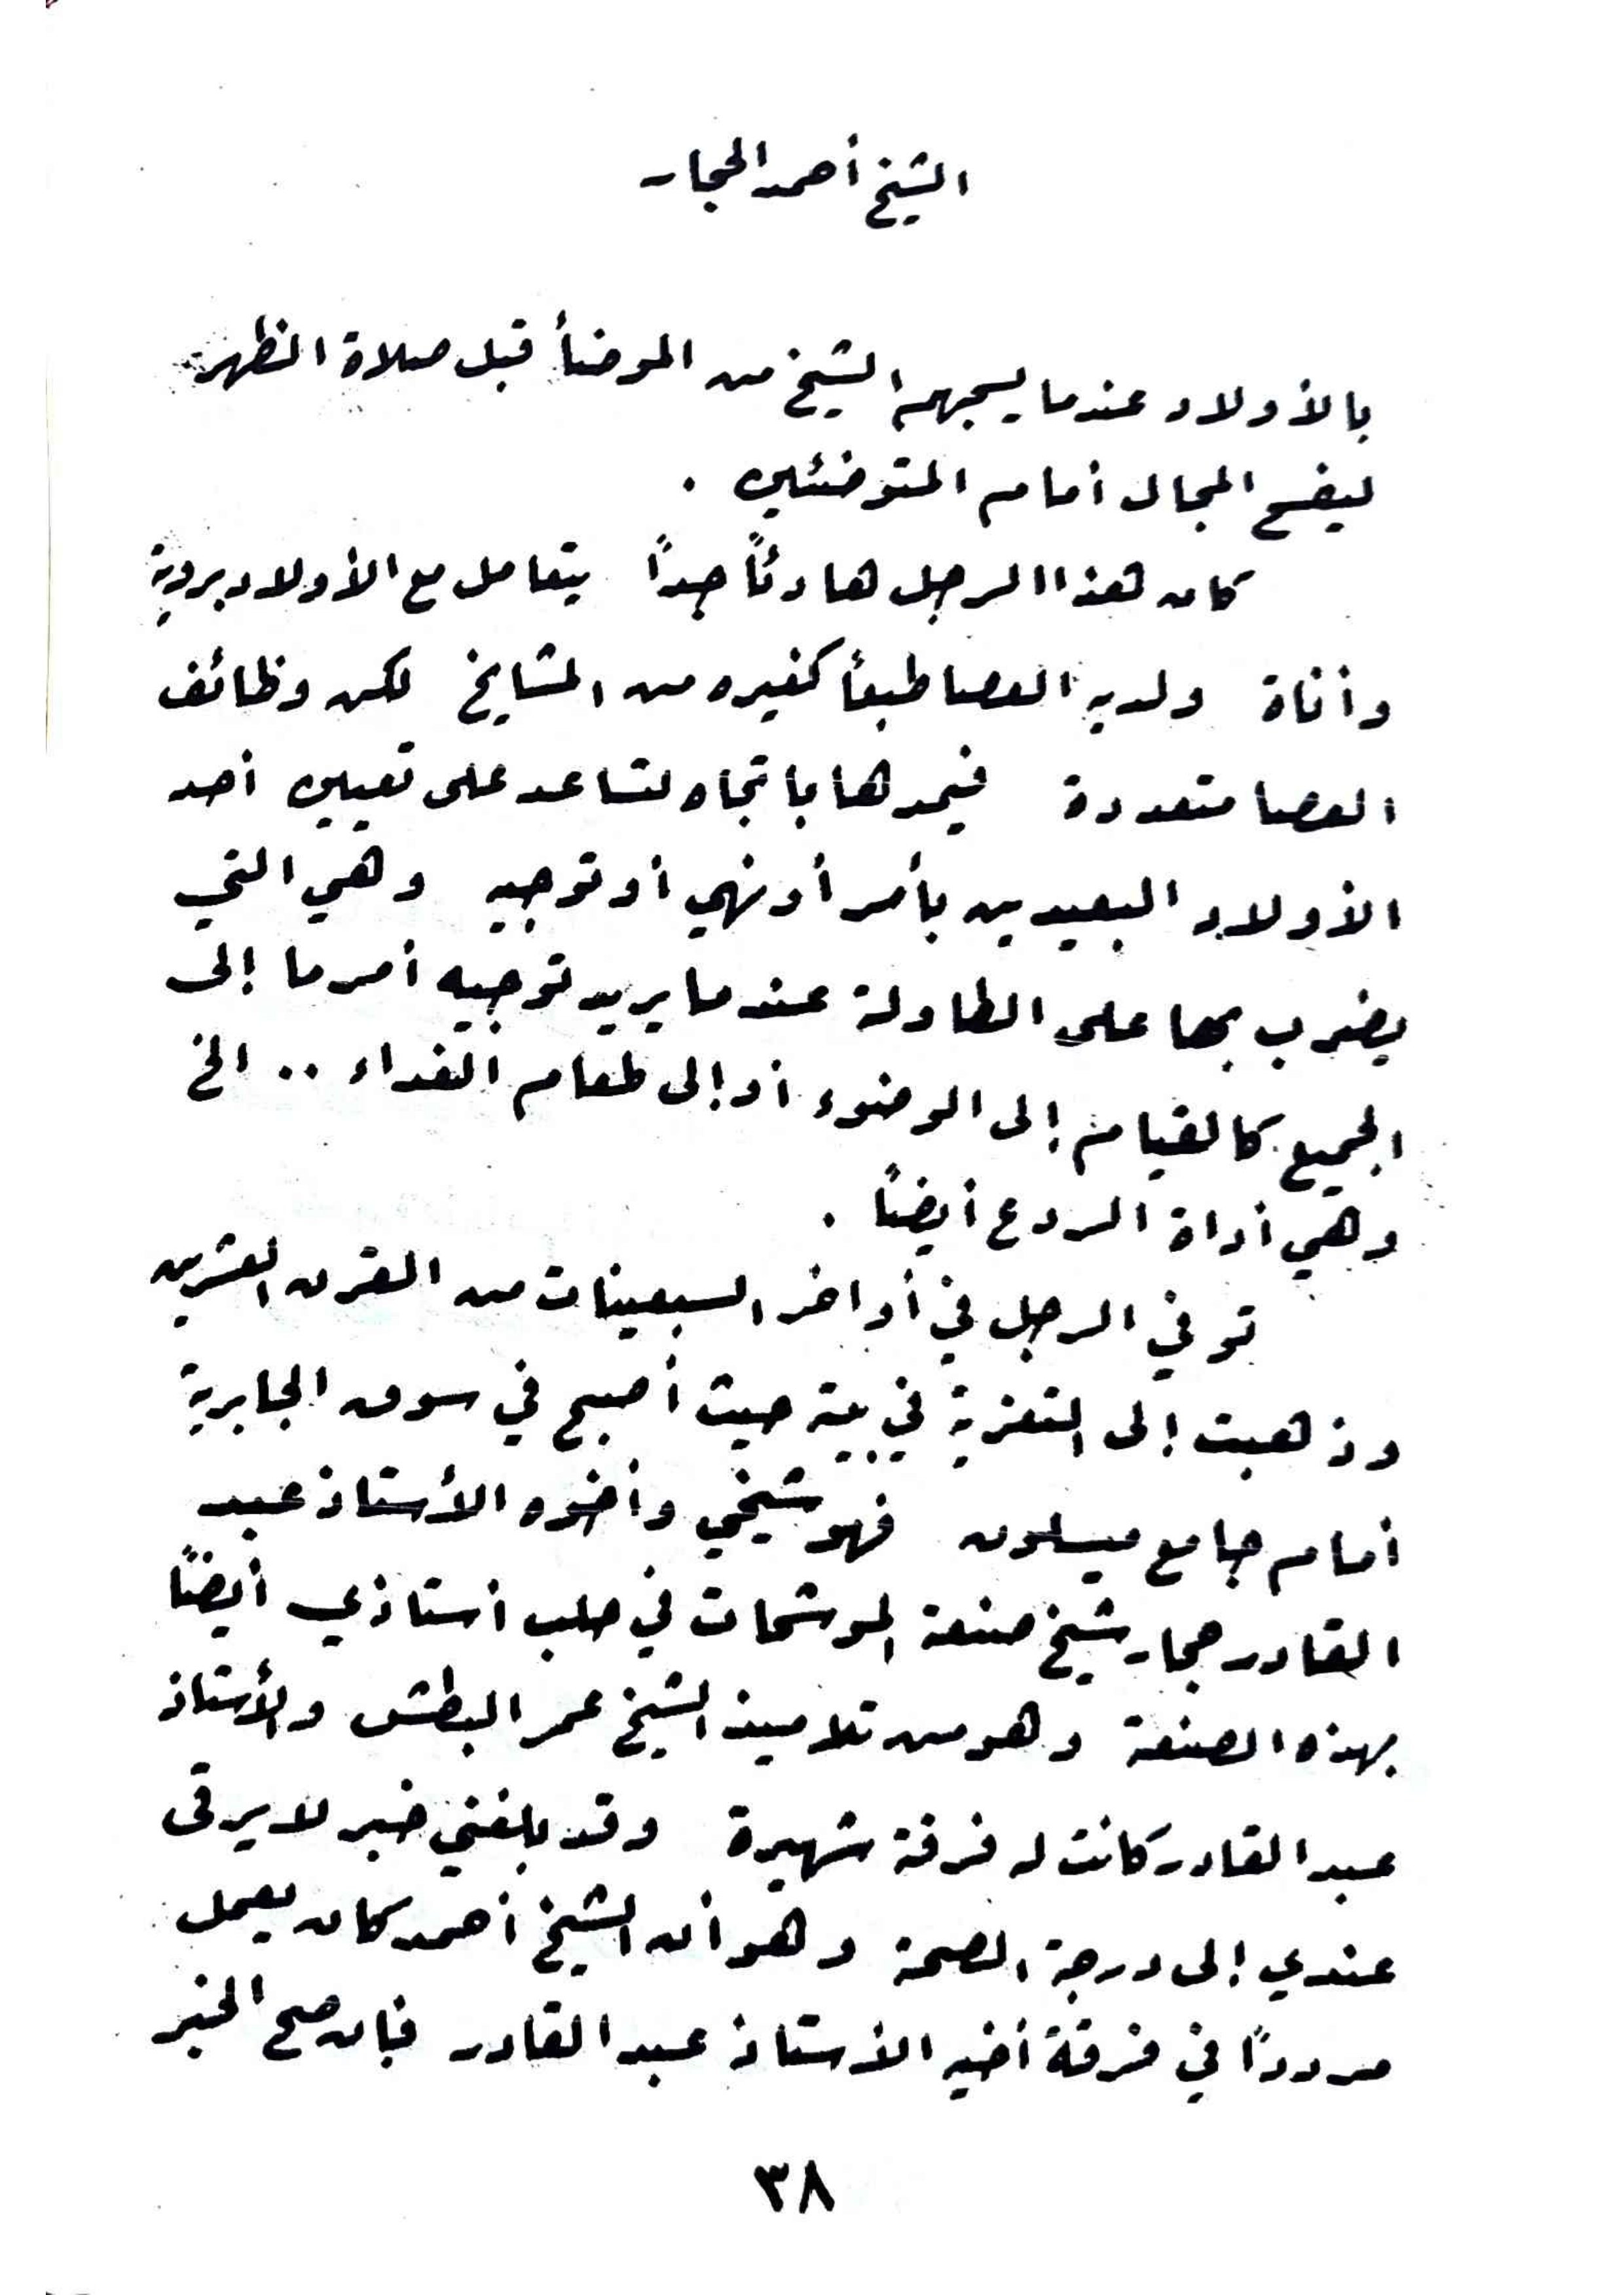 الشيخ أحمد الحجار
بالأولاد عندما يسحبهم الشيخ من الموضأ قبل صلاة الظهر
ليفسح المجال أمام المتوضئين .
كان هذا الرجل هادئاً جداً يتعامل مع الأولاد بروية
وأناة ولديه العصا طبعاً كغيره من المشايخ لكن وظائف
العصا متعددة فيمدها باتجاه لتساعد على تعيين أحد
الأولاد البعيدين بأمر أو نهي أو توجيه وهي التي
يضرب بها على الطاولة عندما يريد توجيه أمر ما إلى
الجميع كالقيام إلى الوضوء أو إلى طعام الغداء .. الخ
وهي أداة الردع أيضاً .
توفي الرجل في أواخر السبعينات من القرن العشرين
وذهبت إلى التعزية في بيته حيث أصبح في سوق الجابرية
أمام جامع ميسلون فهو شيخي وأخوه الأستاذ عبد
القادر حجار شيخ صنعة الموشحات في حلب أستاذي أيضاً
بهذه الصنعة وهو من تلاميذ الشيخ عمر البطش والأستاذ
عبد القادر كانت له فرقة شهيرة وقد بلغني خبر لا يرقى
عندي إلى درجة الصحة وهو أن الشيخ أحمد كان يعمل
مردداً في فرقة أخيه الأستاذ عبد القادر فإن صح الخبر
٣٨